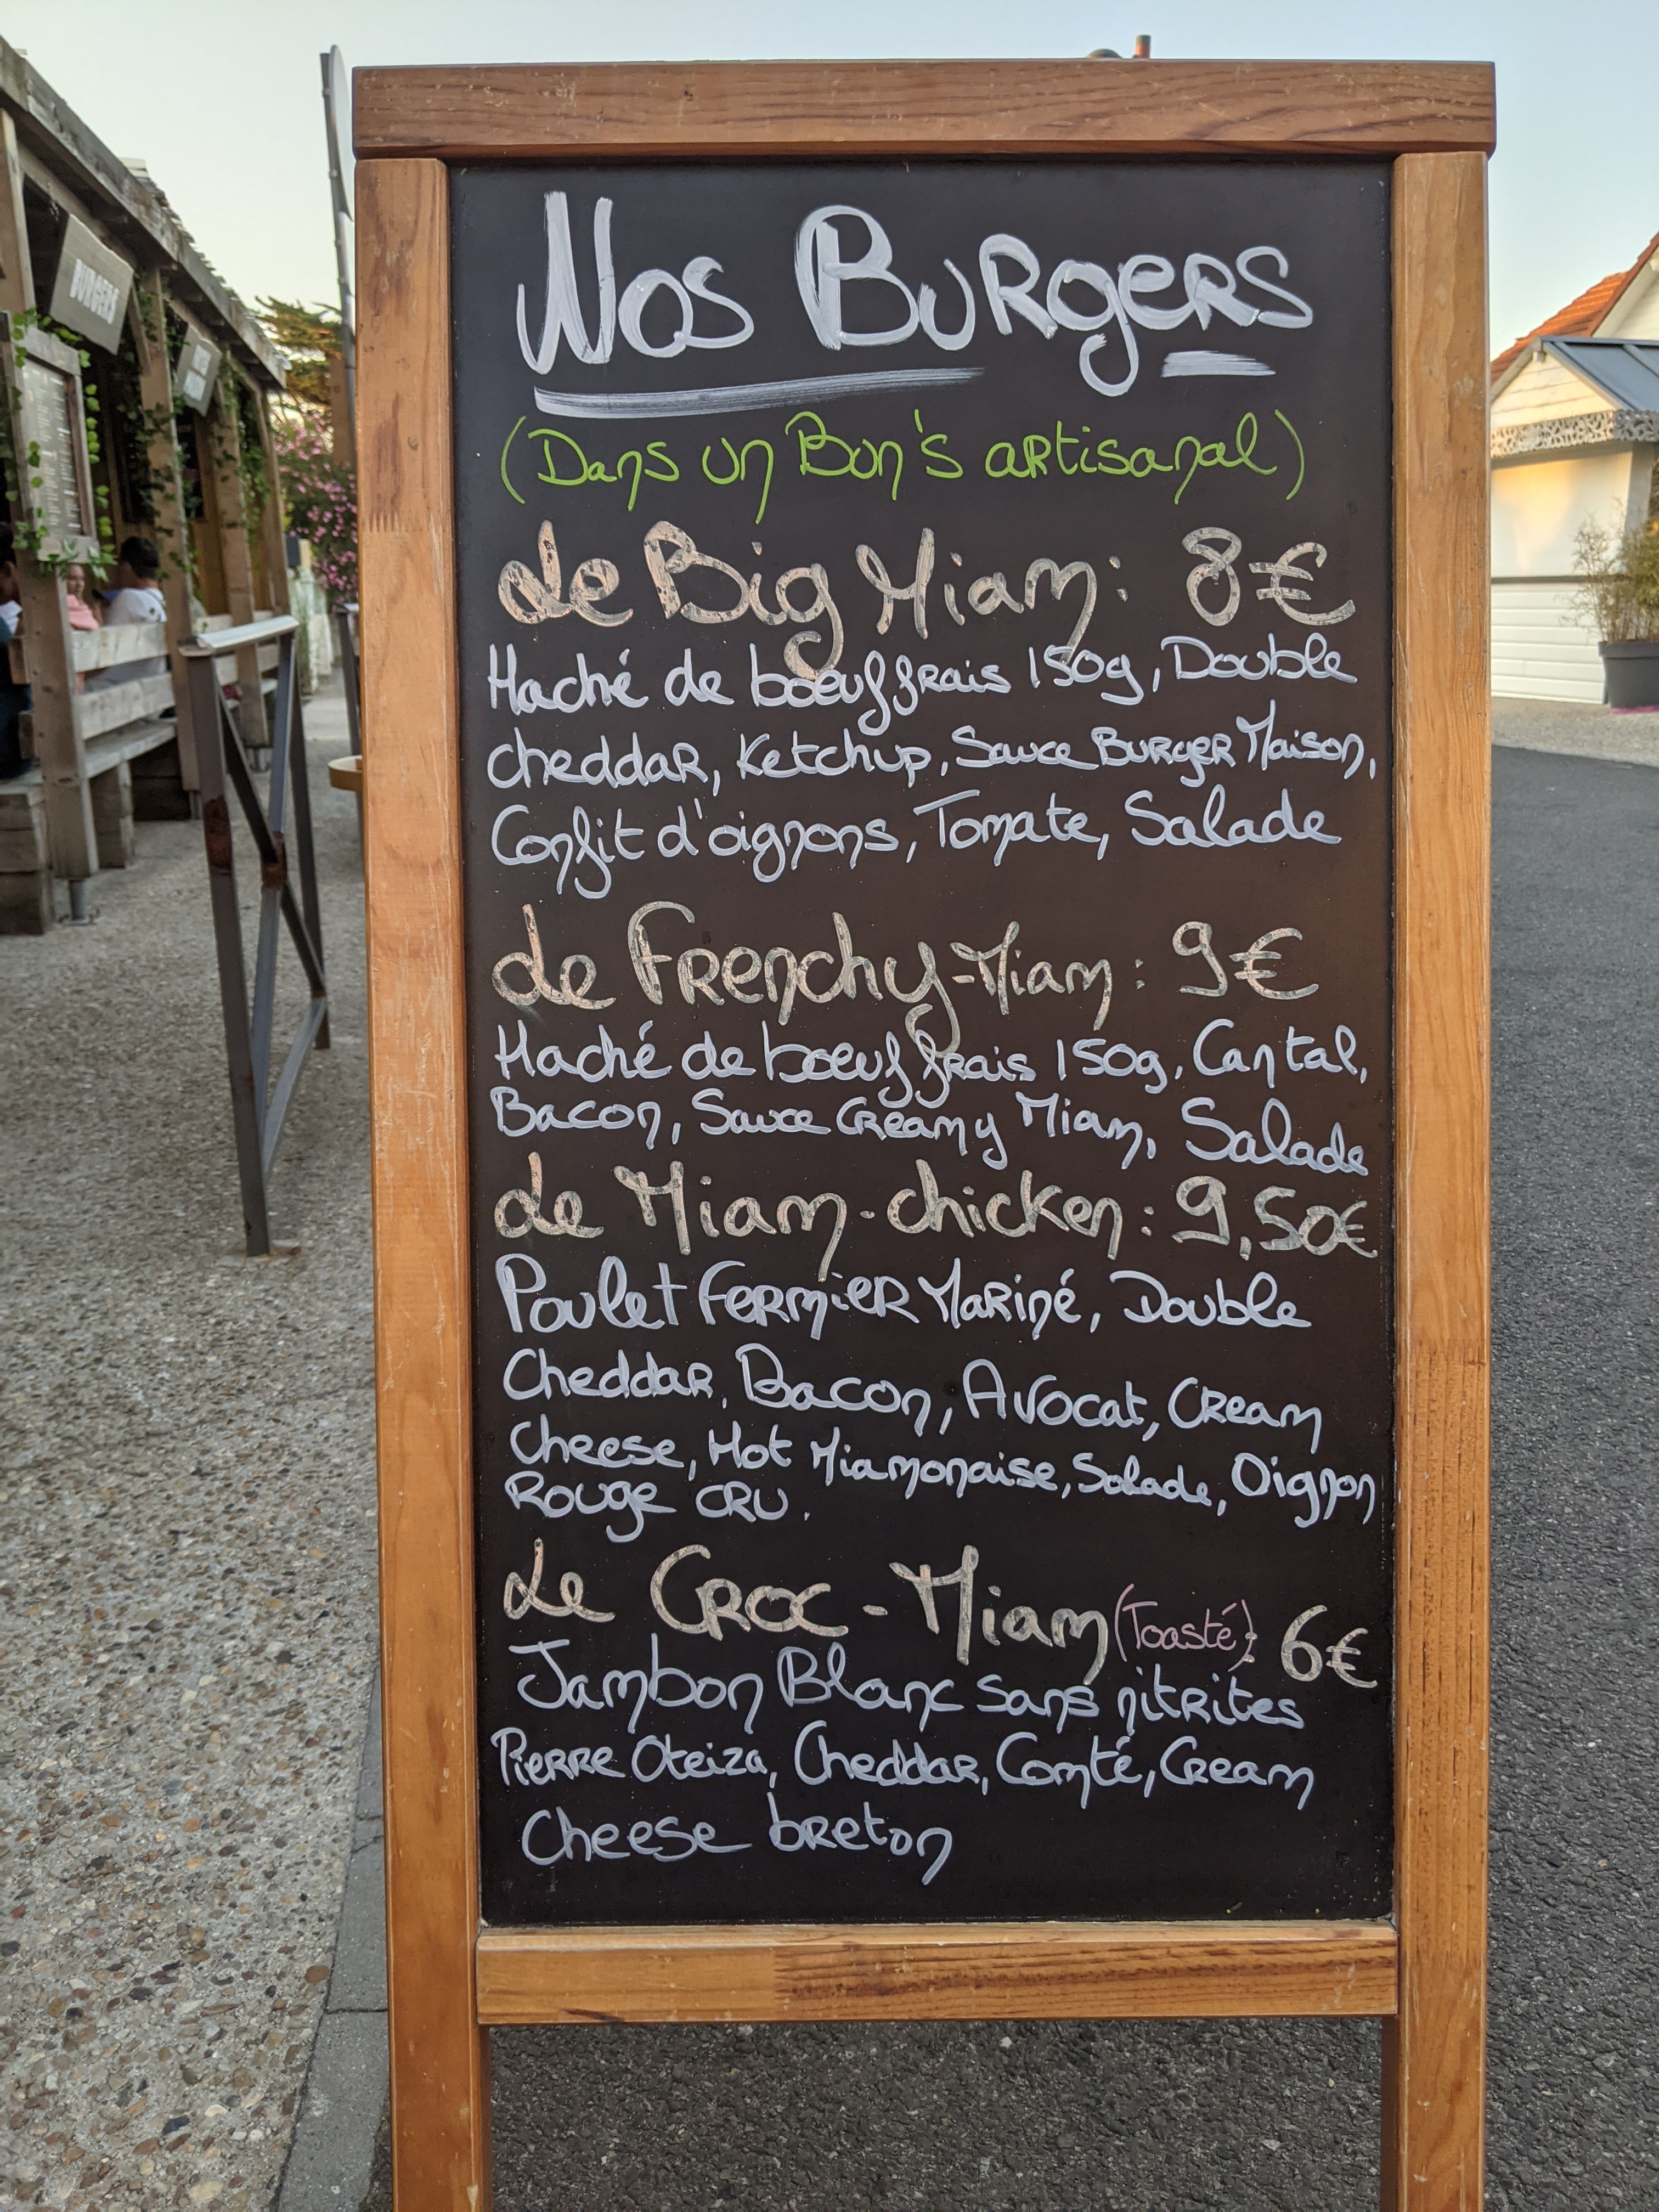 BURGERS
Nos Burgers
(Dans un Bun's artisanal)
Le Big Miam : 8€
Haché de boeuf frais 150g, Double
cheddar, Ketchup, Sauce Burger Maison,
Confit d'oignons, Tomate, Salade
Le Frenchy-Miam : 9€
Haché de boeuf frais 150g, Cantal,
Bacon, Sauce Creamy Miam, Salade
Le Miam-chicken : 9,50€
Poulet Fermier Mariné, Double
Cheddar, Bacon, Avocat, Cream
Cheese, Hot Miamonaise, Salade, Oignon
Rouge cru.
Le Croc-Miam (Toasté): 6€
Jambon Blanc sans nitrites
Pierre Oteiza, Cheddar, Comté, Cream
Cheese breton